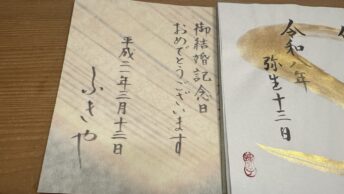 御結婚記念日
おめでとうございます
平成二年三月十三日
ふきや
令和八年
弥生十三日